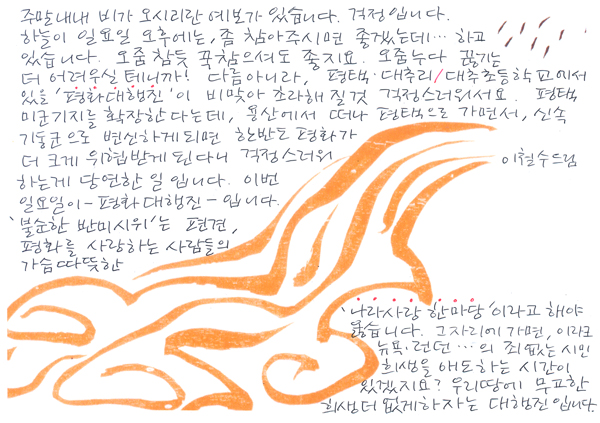 주말내내 비가 오시리란 예보가 있습니다. 걱정입니다.
하늘이 일요일 오후에는, 좀 참아주시면 좋겠는데… 하고
있습니다. 오줌 참듯 꾹 참으셔도 좋지요. 오줌누다 끊기는
더 어려우실 테니까! 다름아니라, 평택·대추리/대추초등학교에서
있을 '평화대행진'이 비맞아 초라해 질것 걱정스러워서요. 평택
미군기지를 확장한다는데, 용산에서 떠나 평택으로 가면서, 신속
기동군으로 변신하게 되면 한반도 평화가
더 크게 위협받게 된다니 걱정스러워
하는게 당연한 일 입니다. 이번
일요일이 - 평화대행진 - 입니다.
'불순한 반미시위'는 편견,
평화를 사랑하는 사람들의
가슴 따뜻한
이철수드림
'나라사랑 한마당'이라고 해야
옳습니다. 그자리에 가면, 이라크
뉴욕·런던…의 죄없는 시민
희생을 애도하는 시간이
있겠지요? 우리땅에 무고한
희생 더 없게하자는 대행진입니다.